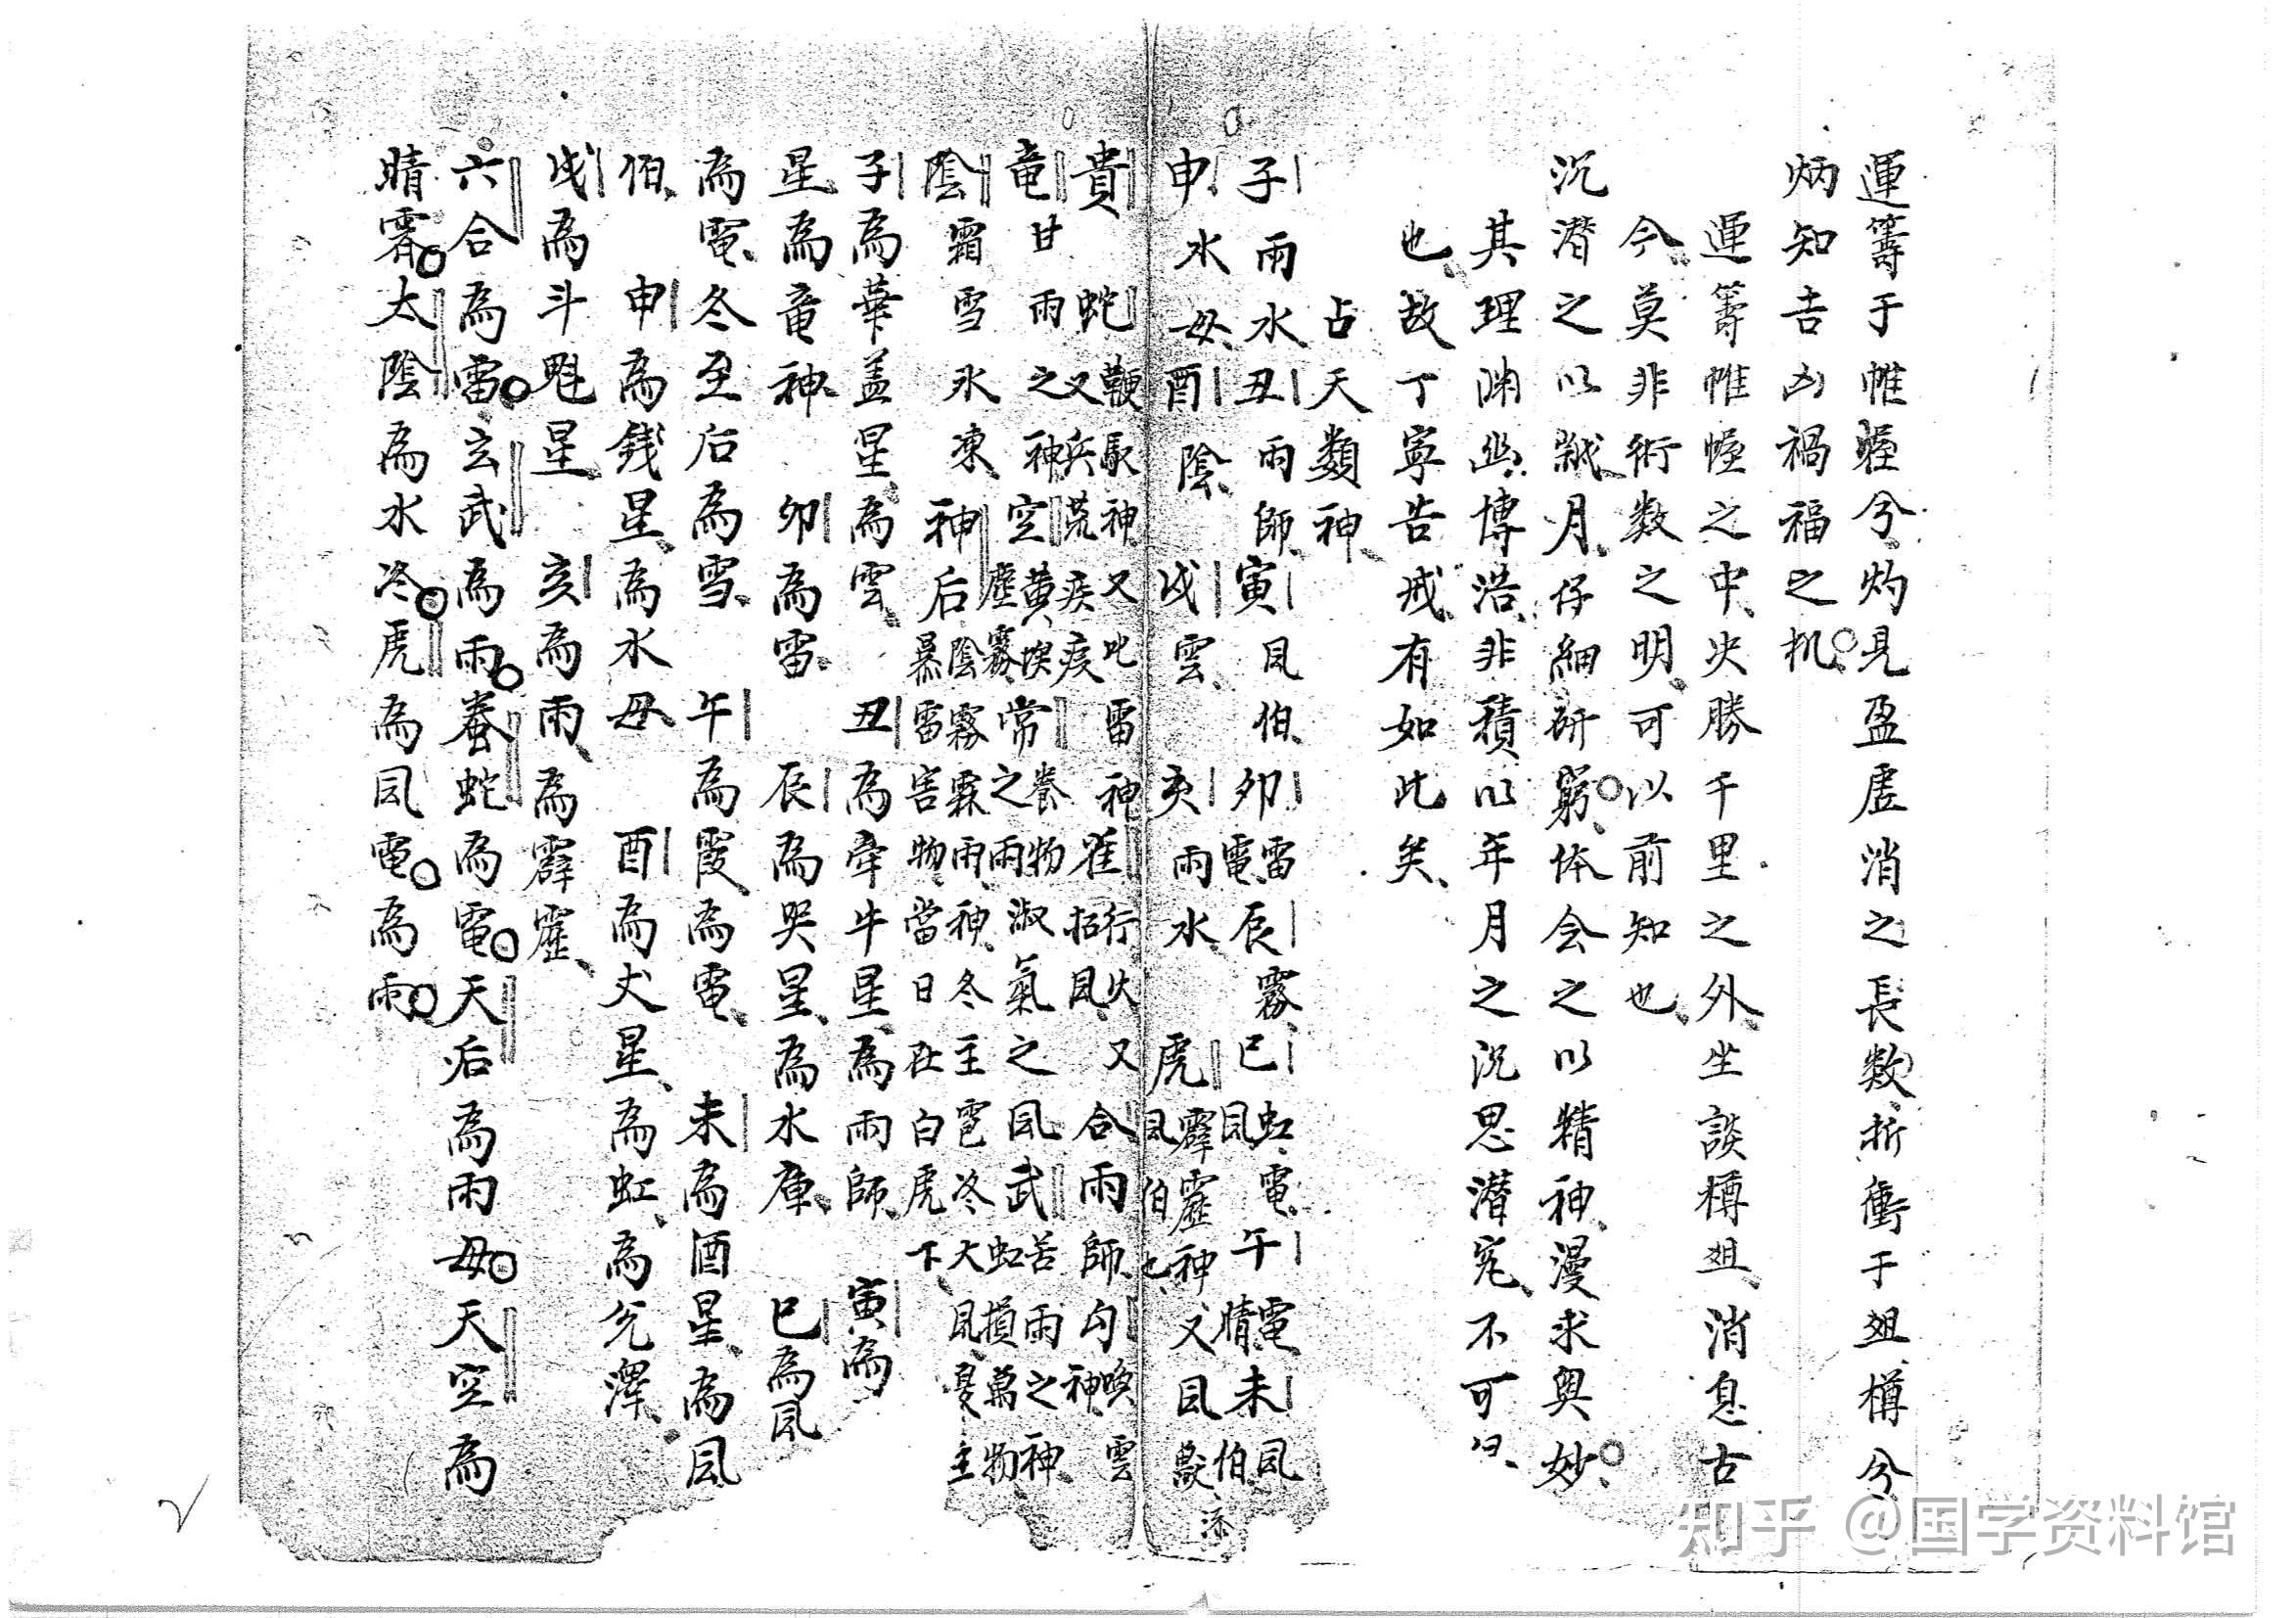 運籌于帷幄兮灼見盈虛消之長数折衝于俎樽兮
炳知吉凶禍福之机
運籌帷幄之中决勝千里之外坐談樽俎消息古
今莫非術数之明可以前知也
沉潛之以歲月仔細研窮体会之以精神漫求奥妙
其理渊幽博浩非積以年月之沉思潛究不可曰
也故丁寧告戒有如此矣
占天類神
子雨水丑雨師寅風伯卯雷電辰霧巳虹電風午電晴未風伯
申水母酉陰戌雲亥雨水虎霹靂神又風伯也
貴蛇鞭駁神又兵荒疾疫又此雷神雀行火又招風合雨師勾喚雲神
竜甘雨之神空黄埃塵霧常養物之雨淑氣之風武苦雨之神虹損萬物
陰霜雪氷凍神后陰霧霖雨神冬主雹冬大風夏主暴雷害物當日在白虎下
子為華盖星為雲丑為牽牛星為雨師寅為
星為竜神卯為雷辰為哭星為水庫巳為風
為電冬至后為雪午為霞為電未為酒星為風
伯申為錢星為水母酉為犬星為虹為兌澤
戌為斗魁星亥為雨為霹靂
六合為雷玄武為雨螣蛇為電天后為雨母天空為
晴霧太陰為水冷虎為風電為雨
知乎 @国学资料馆